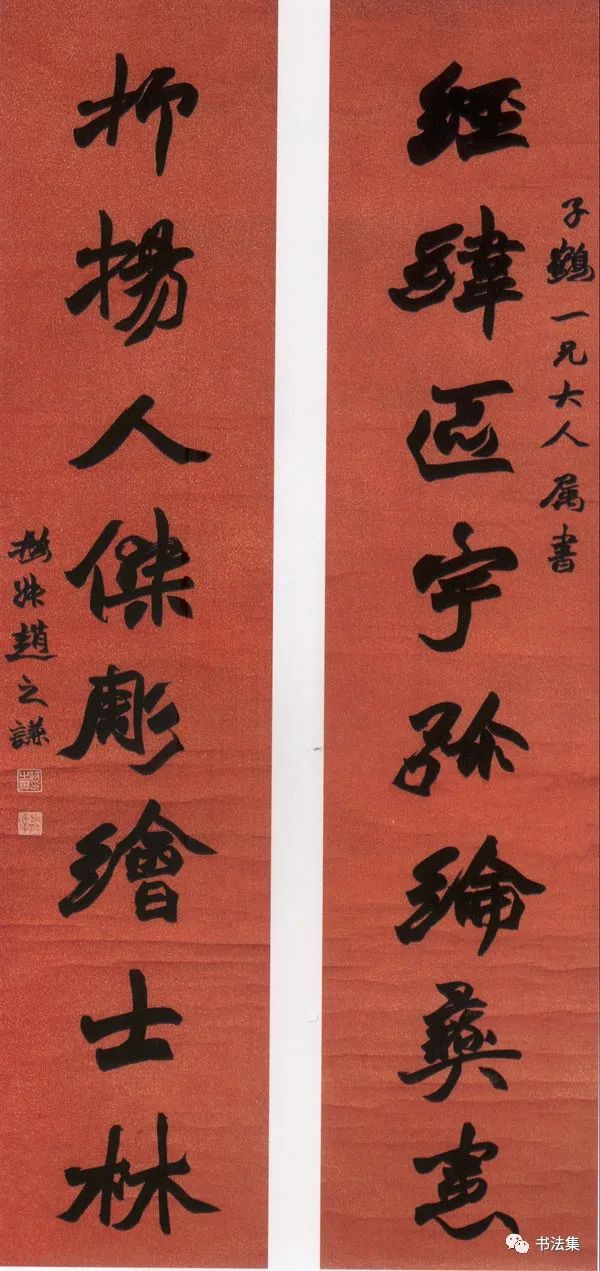 子鶴一兄大人属書
經緯區宇弥綸彝憲
抑揚人傑彫繪士林
撝叔趙之謙
书法集